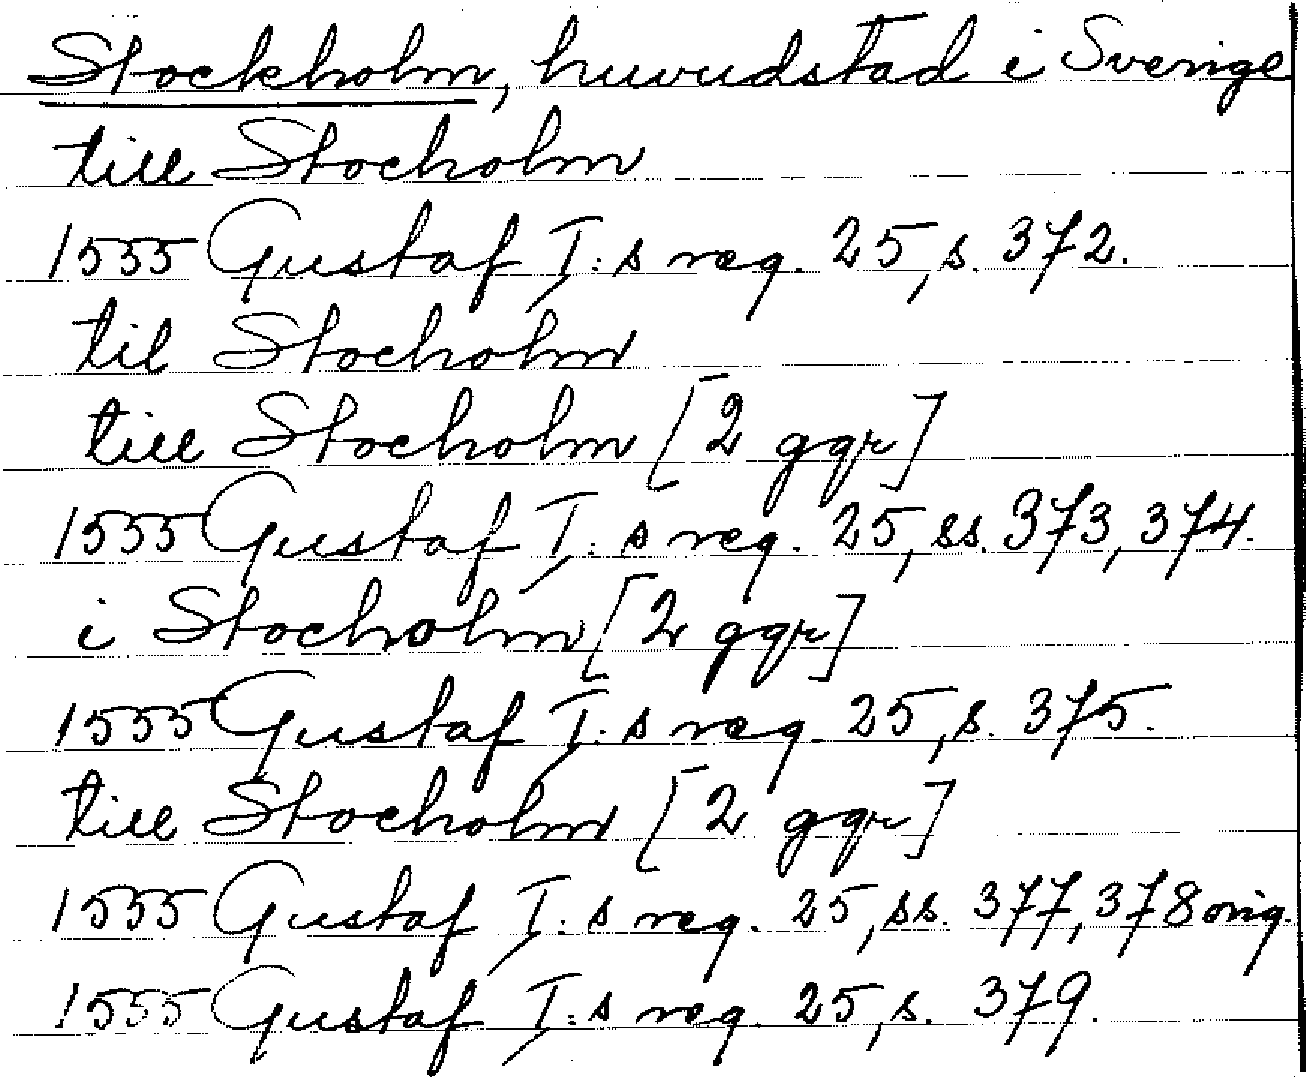 Stockholm, huvudstad i Sverige
till Stocholm
1555 Gustaf I:s reg. 25, s. 372.
til Stocholm
till Stocholm [2 ggr]
1555 Gustaf I:s reg. 25, ss. 373, 374.
i Stocholm [2 ggr]
1555 Gustaf I:s reg. 25, s. 375.
till Stocholm [2 ggr]
1555 Gustaf I:s reg. 25, ss. 377, 378 orig.
1555 Gustaf I:s reg. 25, s. 379.